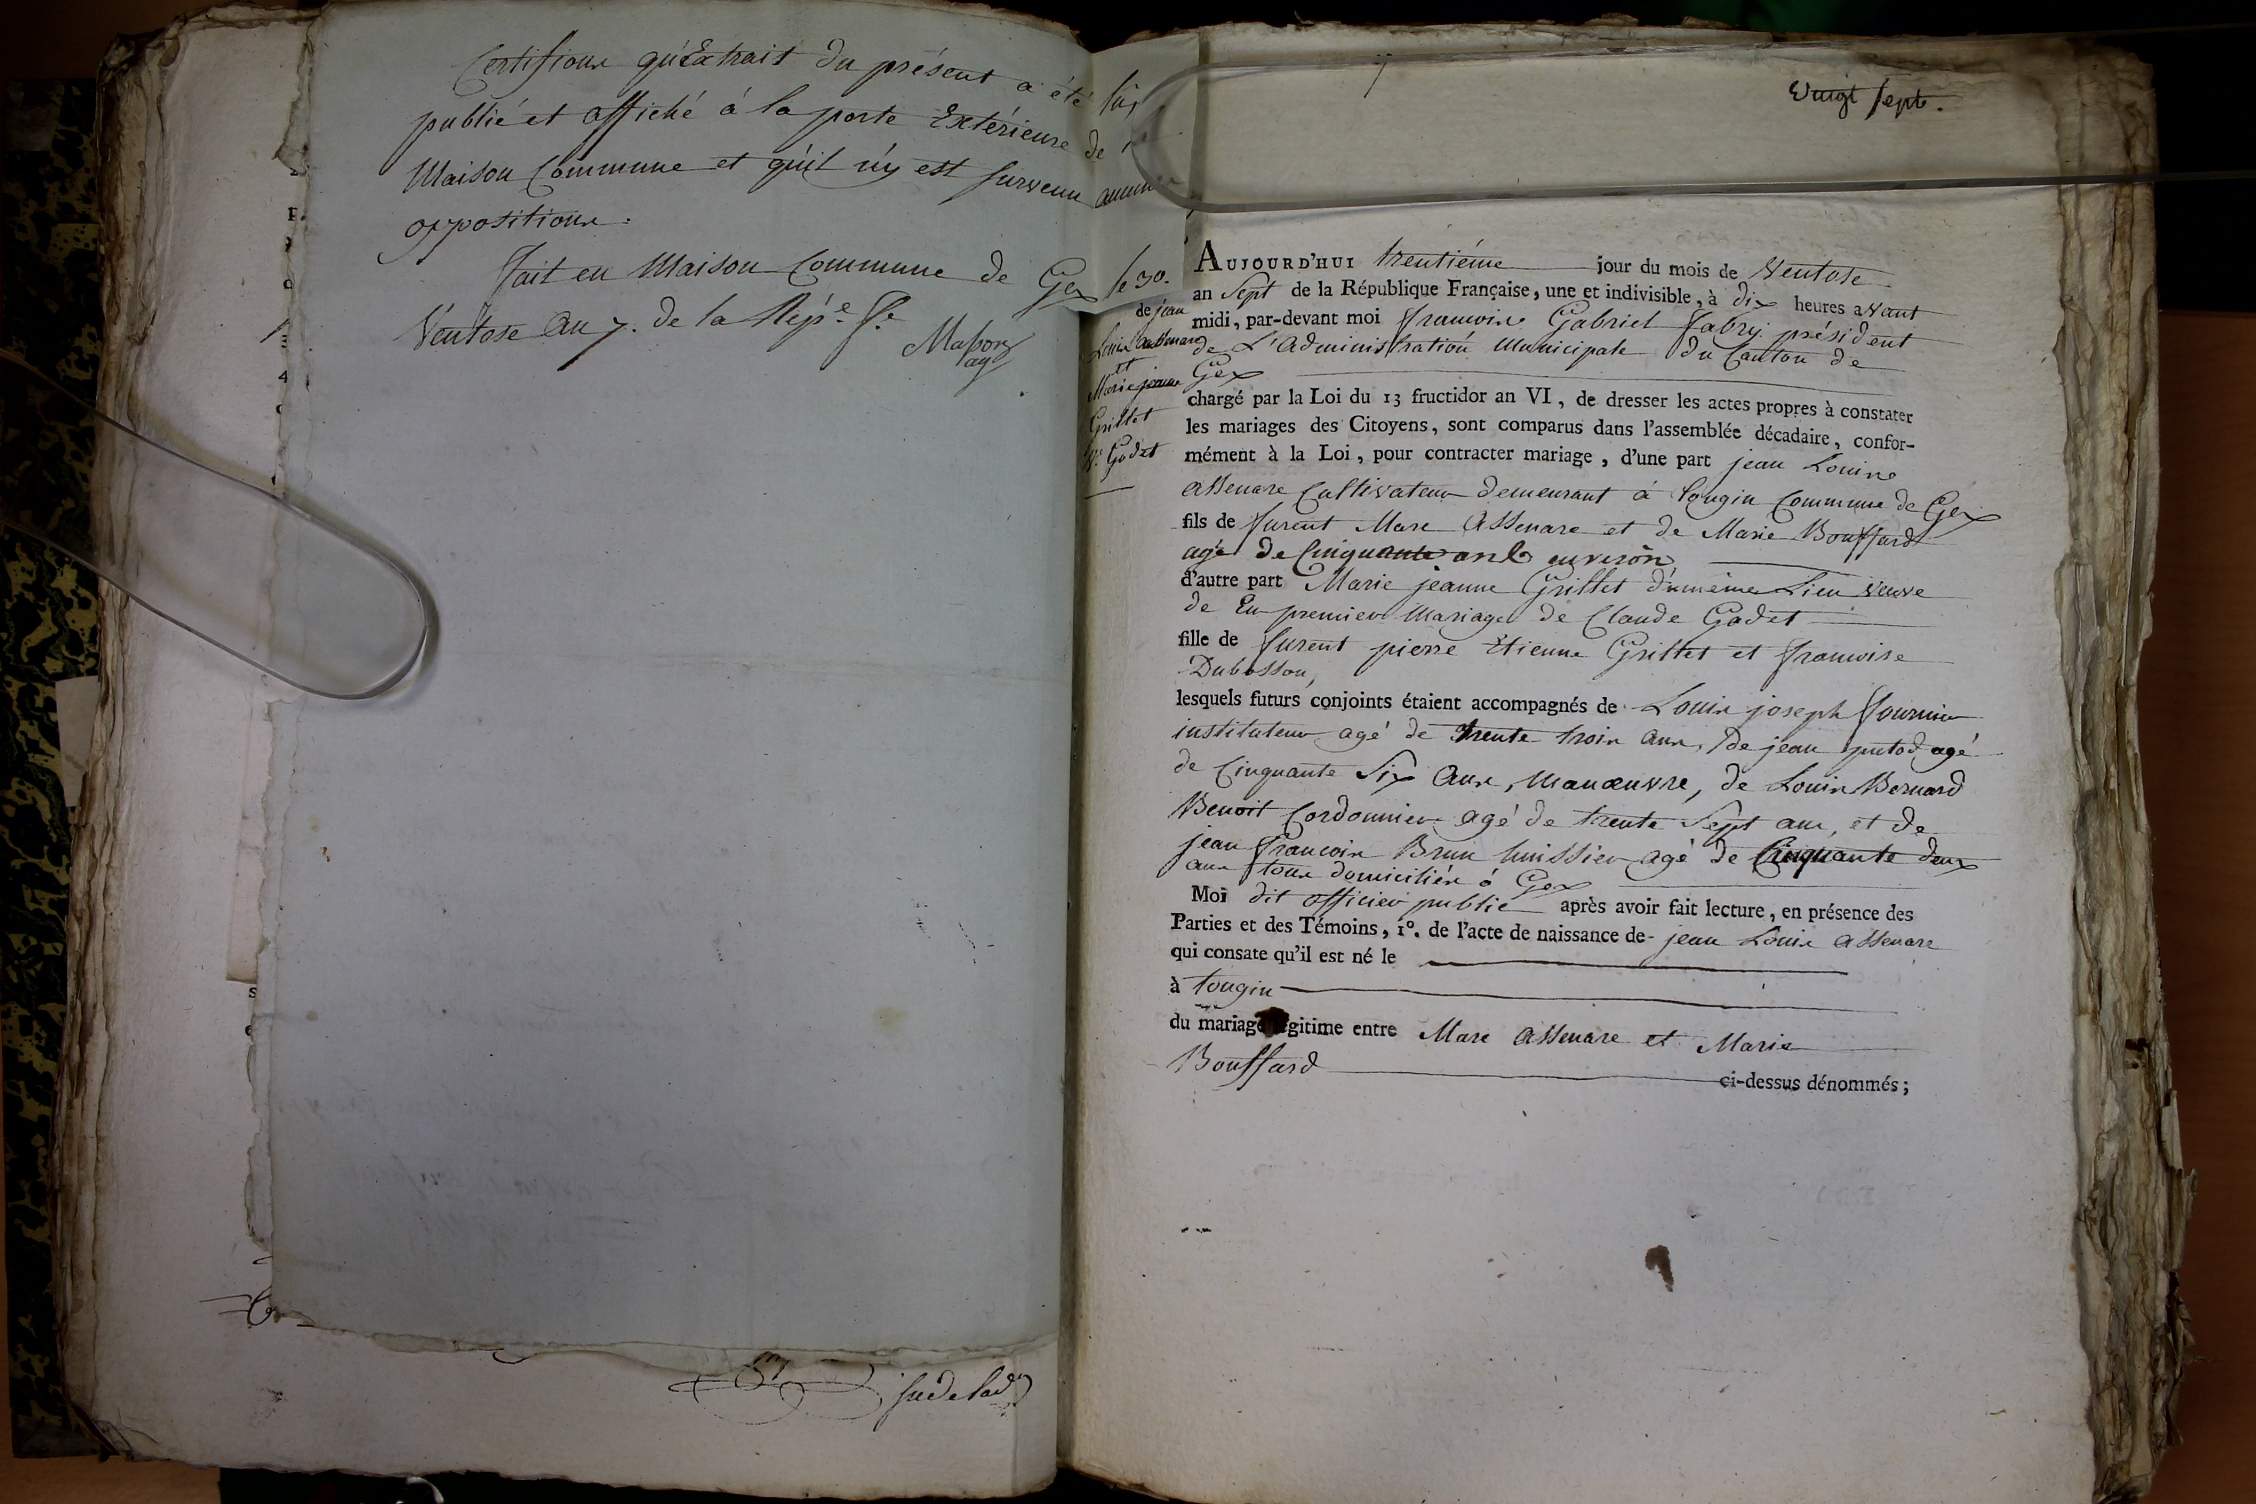 Certifions qu'Extrait du présent a été lu,
publié et affiché à la porte Extérieure de
Maison Commune et qu'il n'y est survenu aucune
oppositions.
Fait en Maison Commune de Gex le 30.
Ventose an 7. de la Rép.e f.e
ag
Vingt sept.
de jean
Louis assenare
et
Marie jeanne
Grillet
V.e Godet
AUJOURD'HUI trentième jour du mois de Ventose
an Sept de la République Française, une et indivisible, à dix heures avant
midi, par-devant moi francois Gabriel fabry président
de L'administration Municipale du Canton de
Gex
chargé par la Loi du 13 fructidor an VI, de dresser les actes propres à constater
les mariages des Citoyens, sont comparus dans l'assemblée décadaire, confor-
mément à la Loi, pour contracter mariage, d'une part jean Louis
assenare Cultivateur demeurant à tougin Commune de Gex
fils de furent Marc Assenare et de Marie Bouffard
agé de Cinquante ans environ
d'autre part Marie jeanne Grillet du même Lieu veuve
de En premier Mariage de Claude Godet
fille de furent pierre Etienne Grillet et francoise
Dubosson,
lesquels futurs conjoints étaient accompagnés de Louis joseph fournier
instituteur agé de trente trois ans, de jean putod agé
de Cinquante Six ans, Manœuvre, de Louis Bernard
Benoit Cordonnier agé de trente Sept ans, et de
jean francois Brun huissier agé de Cinquante deux
ans tous domiciliés à Gex
Moi dit officier public après avoir fait lecture, en présence des
Parties et des Témoins, 1°. de l'acte de naissance de jean Louis assenare
qui consate qu'il est né le
à tougin
du mariage légitime entre Marc assenare et Marie
Bouffard ci-dessus dénommés;